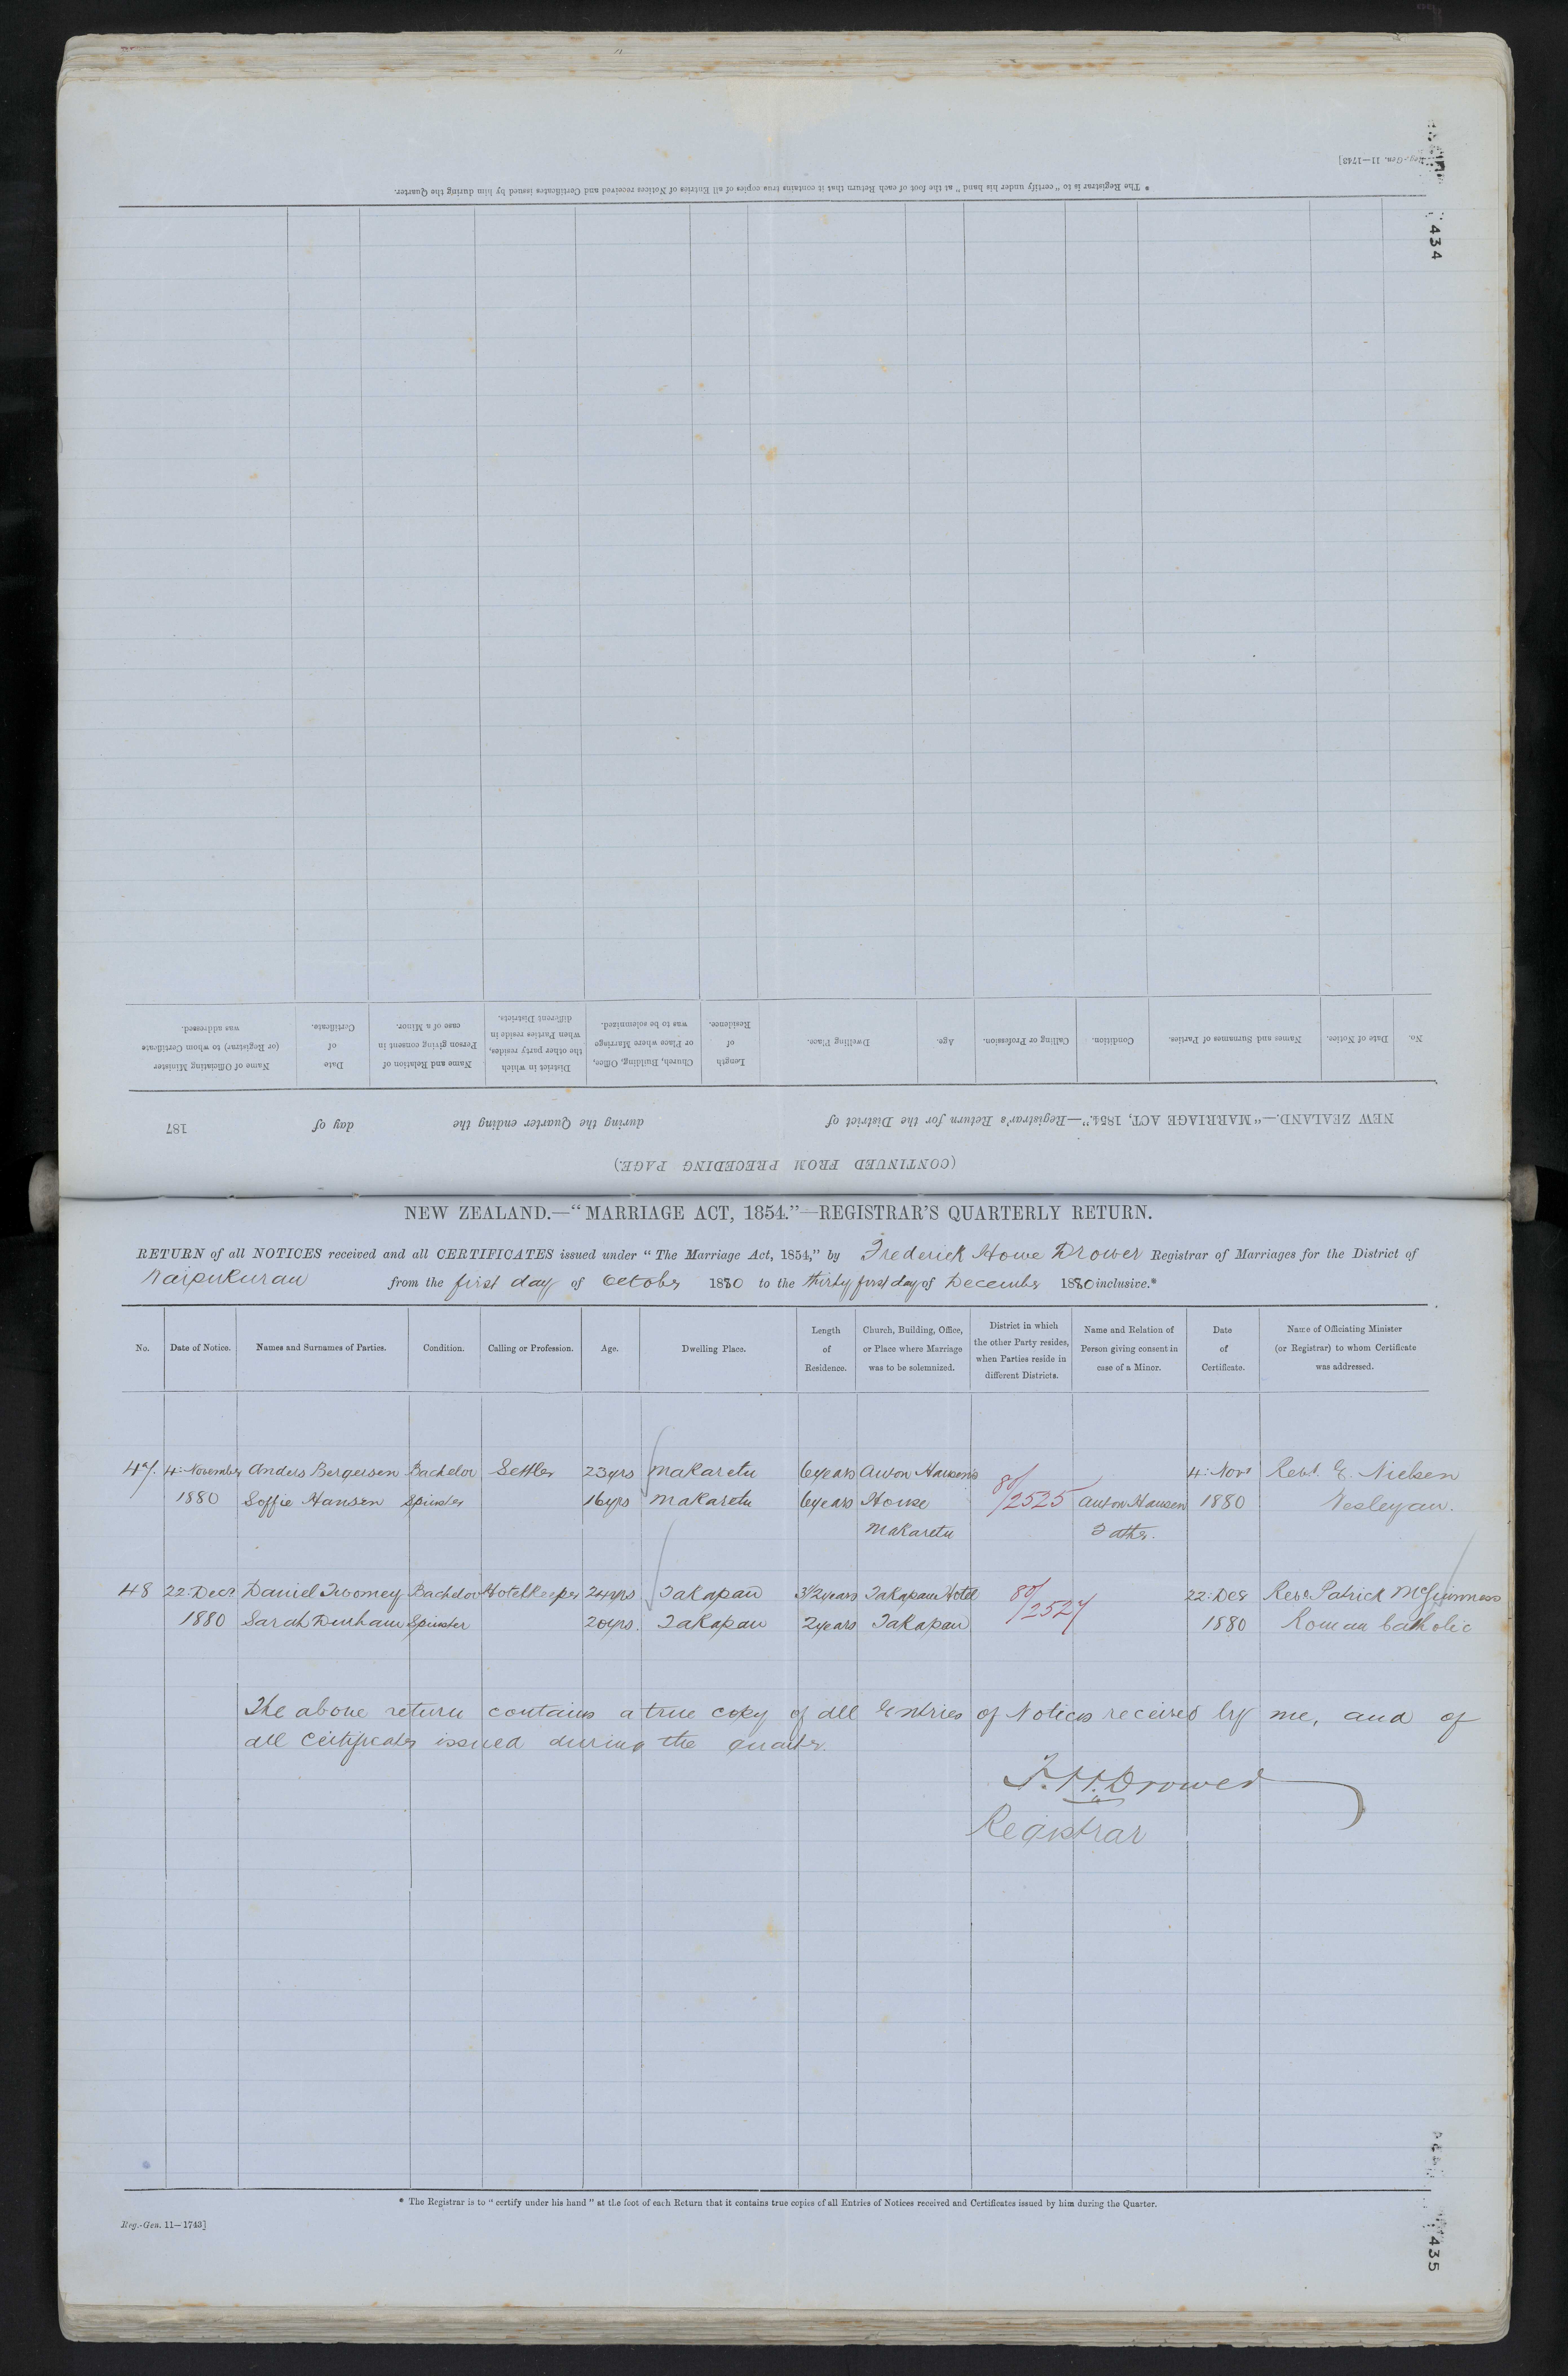 Reg.-Gen. 11—1743]
* The Registrar is to "certify under his hand" at the foot of each Return that it contains true copies of all Entries of Notices received and Certificates issued by him during the Quarter.
434
(CONTINUED FROM PRECEDING PAGE.)
NEW ZEALAND.—"MARRIAGE ACT, 1854."—Registrar's Return for the District of during the Quarter ending the day of 187
No. Date of Notice. Names and Surnames of Parties. Condition. Calling or Profession. Age. Dwelling Place. Length of Residence. Church, Building, Office, or Place where Marriage was to be solemnized. District in which the other party resides, when Parties reside in different Districts. Name and Relation of Person giving consent in case of a Minor. Date of Certificate. Name of Officiating Minister (or Registrar) to whom Certificate was addressed.
NEW ZEALAND.—"MARRIAGE ACT, 1854."—REGISTRAR'S QUARTERLY RETURN.
RETURN of all NOTICES received and all CERTIFICATES issued under "The Marriage Act, 1854," by Frederick Howe Drower Registrar of Marriages for the District of
Waipukurau from the first day of October 1880 to the thirty first day of December 1880 inclusive.*
No. Date of Notice. Names and Surnames of Parties. Condition. Calling or Profession. Age. Dwelling Place. Length of Residence. Church, Building, Office, or Place where Marriage was to be solemnized. District in which the other Party resides, when Parties reside in different Districts. Name and Relation of Person giving consent in case of a Minor. Date of Certificate. Name of Officiating Minister (or Registrar) to whom Certificate was addressed.
47. 4: November Anders Bergersen Bachelor Settler 23yrs Makaretu 6years Anton Hansen's 80/2525 4: Novr Revd. E. Nielsen
1880 Soffie Hansen Spinster 16yrs Makaretu 6years House Anton Hansen 1880 Wesleyan.
Makaretu Father.
48 22: Decr Daniel Twomey Bachelor Hotelkeeper 24yrs Takapau 3½years Takapau Hotel 80/2527 22: Decr Revd Patrick McGuinness
1880 Sarah Durham Spinster 20yrs. Takapau 2years Takapau 1880 Roman Catholic
The above return contains a true copy of all Entries of Notices received by me, and of
all certificates issued during the quarter.
F. H. Drower
Registrar
* The Registrar is to "certify under his hand" at the foot of each Return that it contains true copies of all Entries of Notices received and Certificates issued by him during the Quarter.
Reg.-Gen. 11—1743]
435